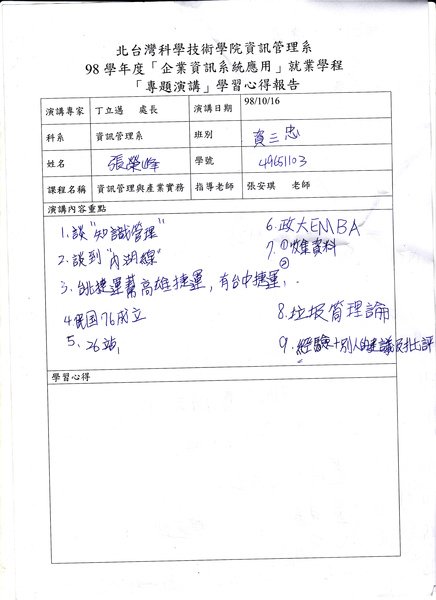 北台灣科學技術學院資訊管理系
98 學年度「企業資訊系統應用」就業學程
「專題演講」學習心得報告
演講專家 丁立邁 處長 演講日期 98/10/16
科系 資訊管理系 班別 資三忠
姓名 張榮峰 學號 49651103
課程名稱 資訊管理與產業實務 指導老師 張安琪 老師
演講內容重點
1. 談"知識管理"
2. 談到"內湖線"
3. 台北捷運蓋高雄捷運，有台中捷運．
4. 民国76成立
5. 26站，
6. 政大EMBA
7. ①收集資料
②
8. 垃圾管理論
9. 經驗+別人的建議及批評
學習心得